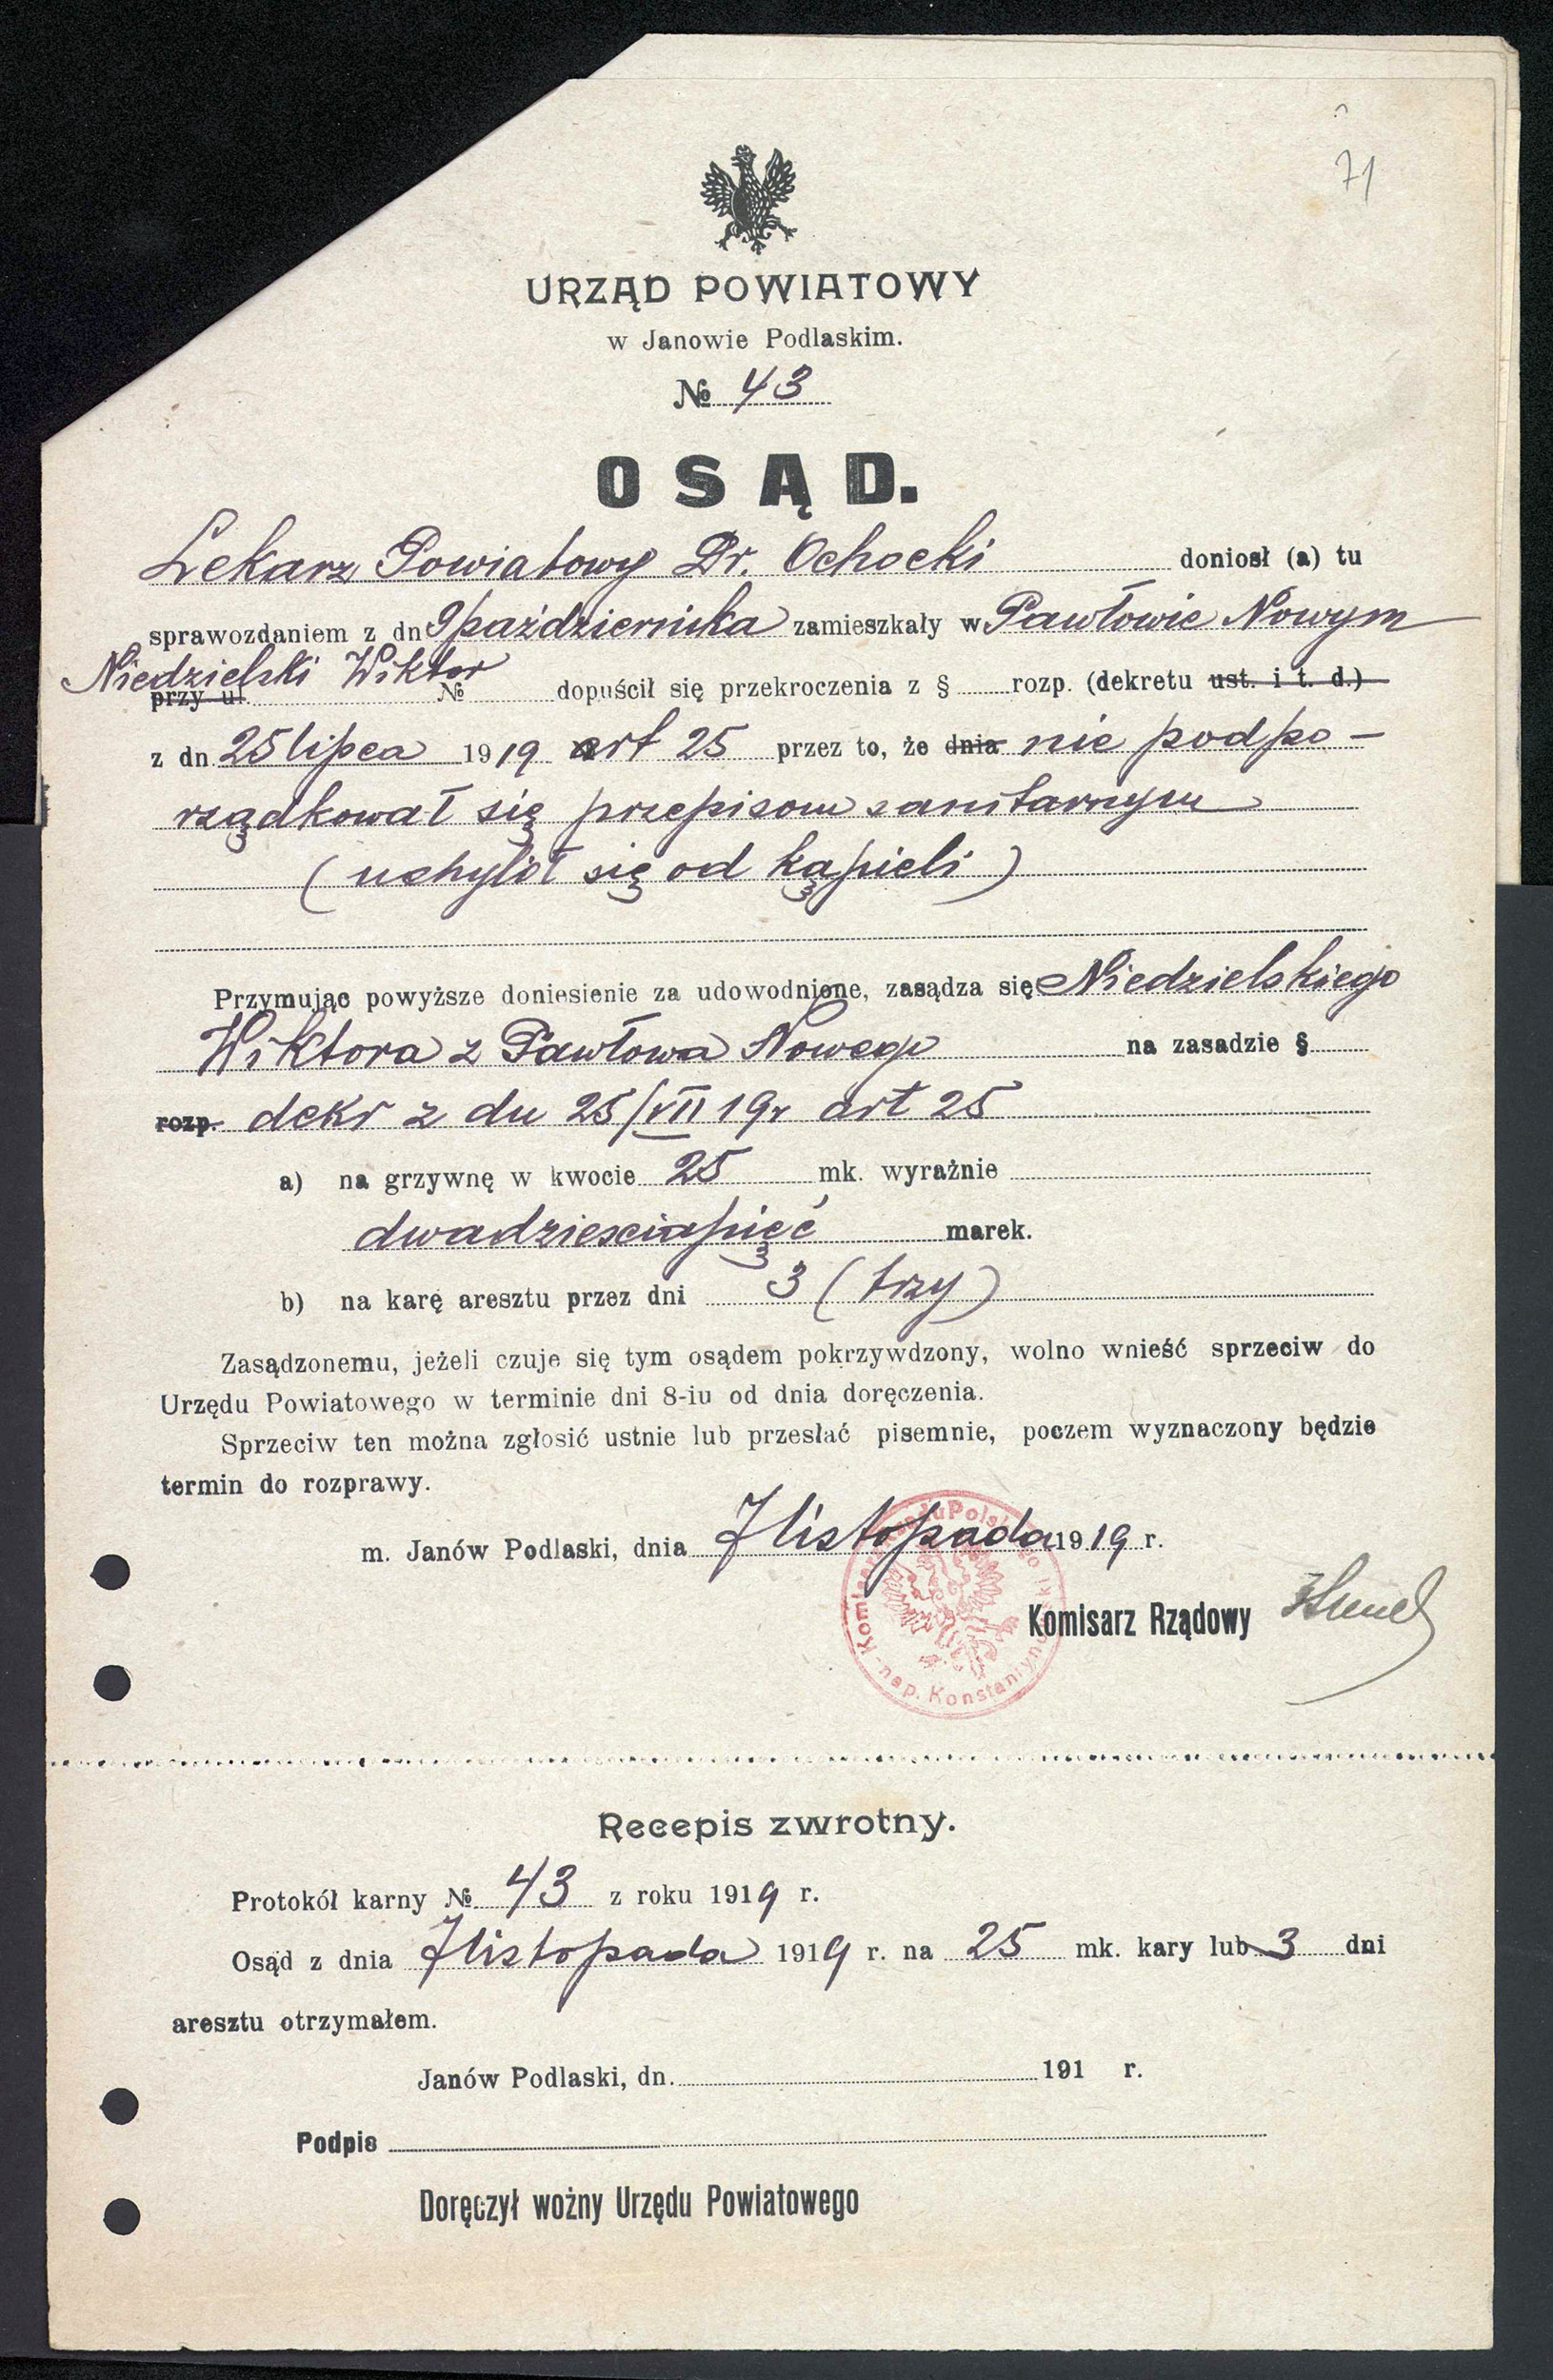 71
URZĄD POWIATOWY
w Janowie Podlaskim.
№ 43
OSĄD.
Lekarz Powiatowy Dr. Ochocki doniosł (a) tu
sprawozdaniem z dn 9 października zamieszkały w Pawłowie Nowym
Niedzielski Wiktor
przy ul. № dopuścił się przekroczenia z § rozp. (dekretu ust. i t. d.)
z dn. 25 lipca 1919 art 25 przez to, że dnia nie podpo-
rządkował się przepisom sanitarnym
(uchylił się od kąpieli)
Przymując powyższe doniesienie za udowodnione, zasądza się Niedzielskiego
Wiktora z Pawłowa Nowego na zasadzie §
rozp. dekr z dn 25/VII 19r art 25
a) na grzywnę w kwocie 25 mk. wyraźnie
dwadziesciapięć marek.
b) na karę aresztu przez dni 3 (trzy)
Zasądzonemu, jeżeli czuje się tym osądem pokrzywdzony, wolno wnieść sprzeciw do
Urzędu Powiatowego w terminie dni 8-iu od dnia doręczenia.
Sprzeciw ten można zgłosić ustnie lub przesłać pisemnie, poczem wyznaczony będzie
termin do rozprawy.
m. Janów Podlaski, dnia 7 listopada 1919 r.
Komisarz Rządowy
Recepis zwrotny.
Protokół karny № 43 z roku 1919 r.
Osąd z dnia 7 listopada 1919 r. na 25 mk. kary lub 3 dni
aresztu otrzymałem.
Janów Podlaski, dn. 191 r.
Podpis
Doręczył woźny Urzędu Powiatowego